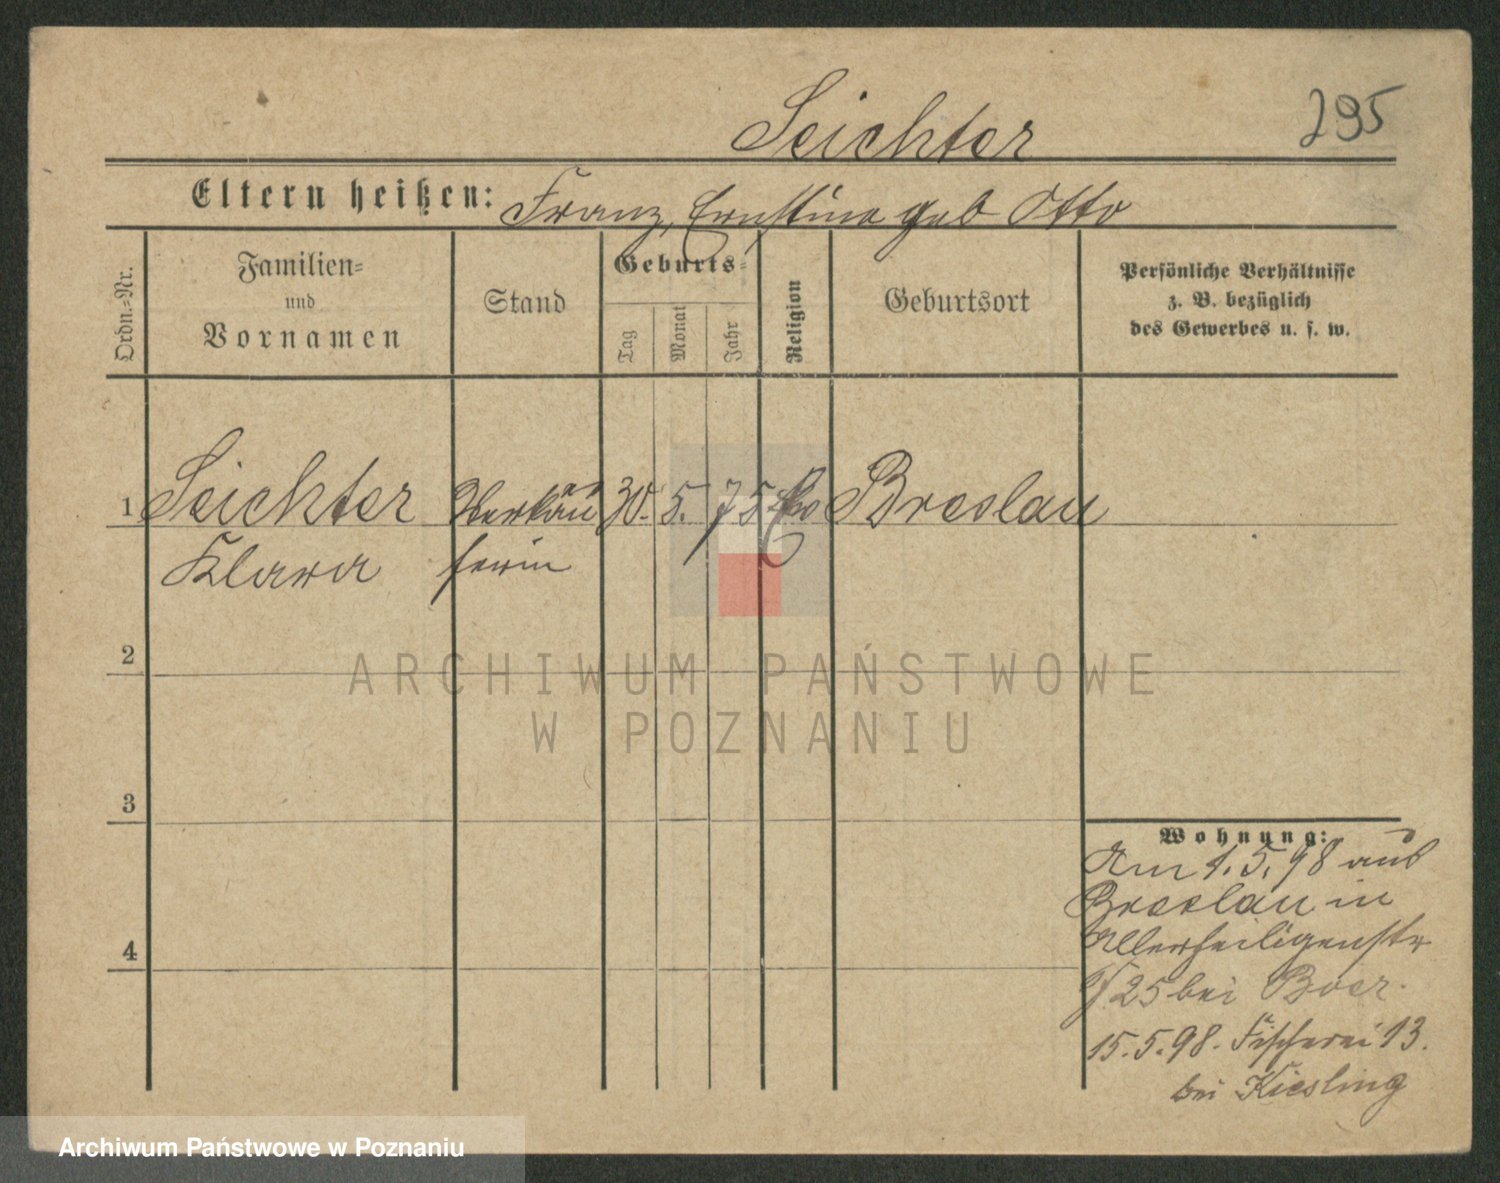 Seichter
295
Eltern heißen: Franz, Ernstine geb Otto
Ordn.=Nr.
Familien=
und
Vornamen
Stand
Geburts=
Tag
Monat
Jahr
Religion
Geburtsort
Persönliche Verhältnisse
z. B. bezüglich
des Gewerbes u. s. w.
1 Seichter Verkäu 30. 5. 75 Breslau
Klara ferin
2
3
4
Wohnung:
Am 1.5.98 aus
Breslau in
Allerheiligenstr
25 bei Boer.
15.5.98. Fischerei 13.
bei Kiesling
ARCHIWUM PAŃSTWOWE
W POZNANIU
Archiwum Państwowe w Poznaniu